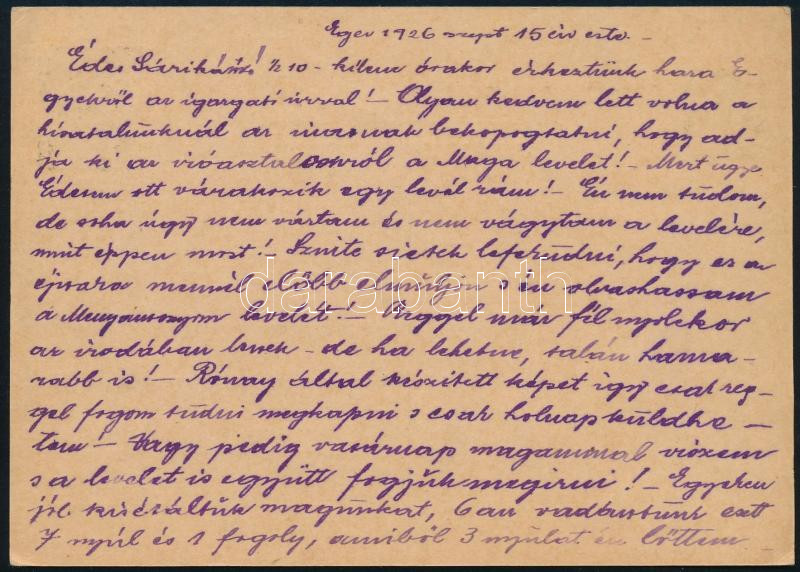 Eger 1926 szept 15 én este. –
Édes Sárikám! ½ 10 – kilenc órakor érkeztünk haza E-
gyekről az igazgató úrral! – Olyan kedvem lett volna a
hivatalunknál az inasnak bekopogtatni, hogy ad-
ja ki az iróasztalomról a Maga levelét! – Mert ugye
Édesem ott várakozik egy levél rám! – Én nem tudom,
de soha úgy nem vártam és nem vágytam a levelére,
mint éppen most! Szinte sietek lefeküdni, hogy ez az
éjszaka mennél előbb elmúljon s én olvashassam
a Menyasszonyom levelét! – Reggel már fél nyolckor
az irodában leszek – de ha lehetne, talán hama-
rabb is! – Rónay által készitett képet így csak reg-
gel fogom tudni megkapni s csak holnap küldhe-
tem! – Vagy pedig vasárnap magammal viszem
s a levelet is együtt fogjuk megirni! – Egyeken
jól kisétáltuk magunkat, 6 an vadásztunk esett
7 nyúl és 1 fogoly, amiből 3 nyúlat én lőttem
darabanth.com